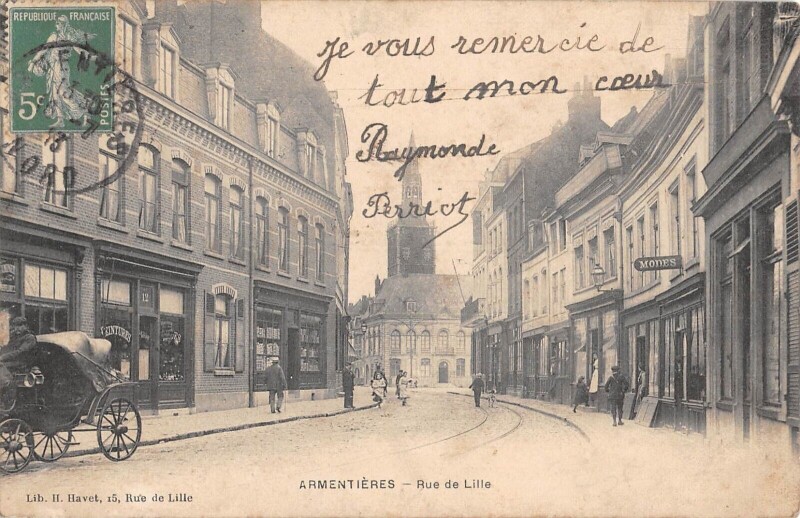 REPUBLIQUE FRANÇAISE
5c POSTES
ARMENTIÈRES
13
NORD
Je vous remercie de
tout mon cœur
Raymonde
Perriot
MODES
12
PEINTURES
ARMENTIÈRES – Rue de Lille
Lib. H. Havet, 15, Rue de Lille